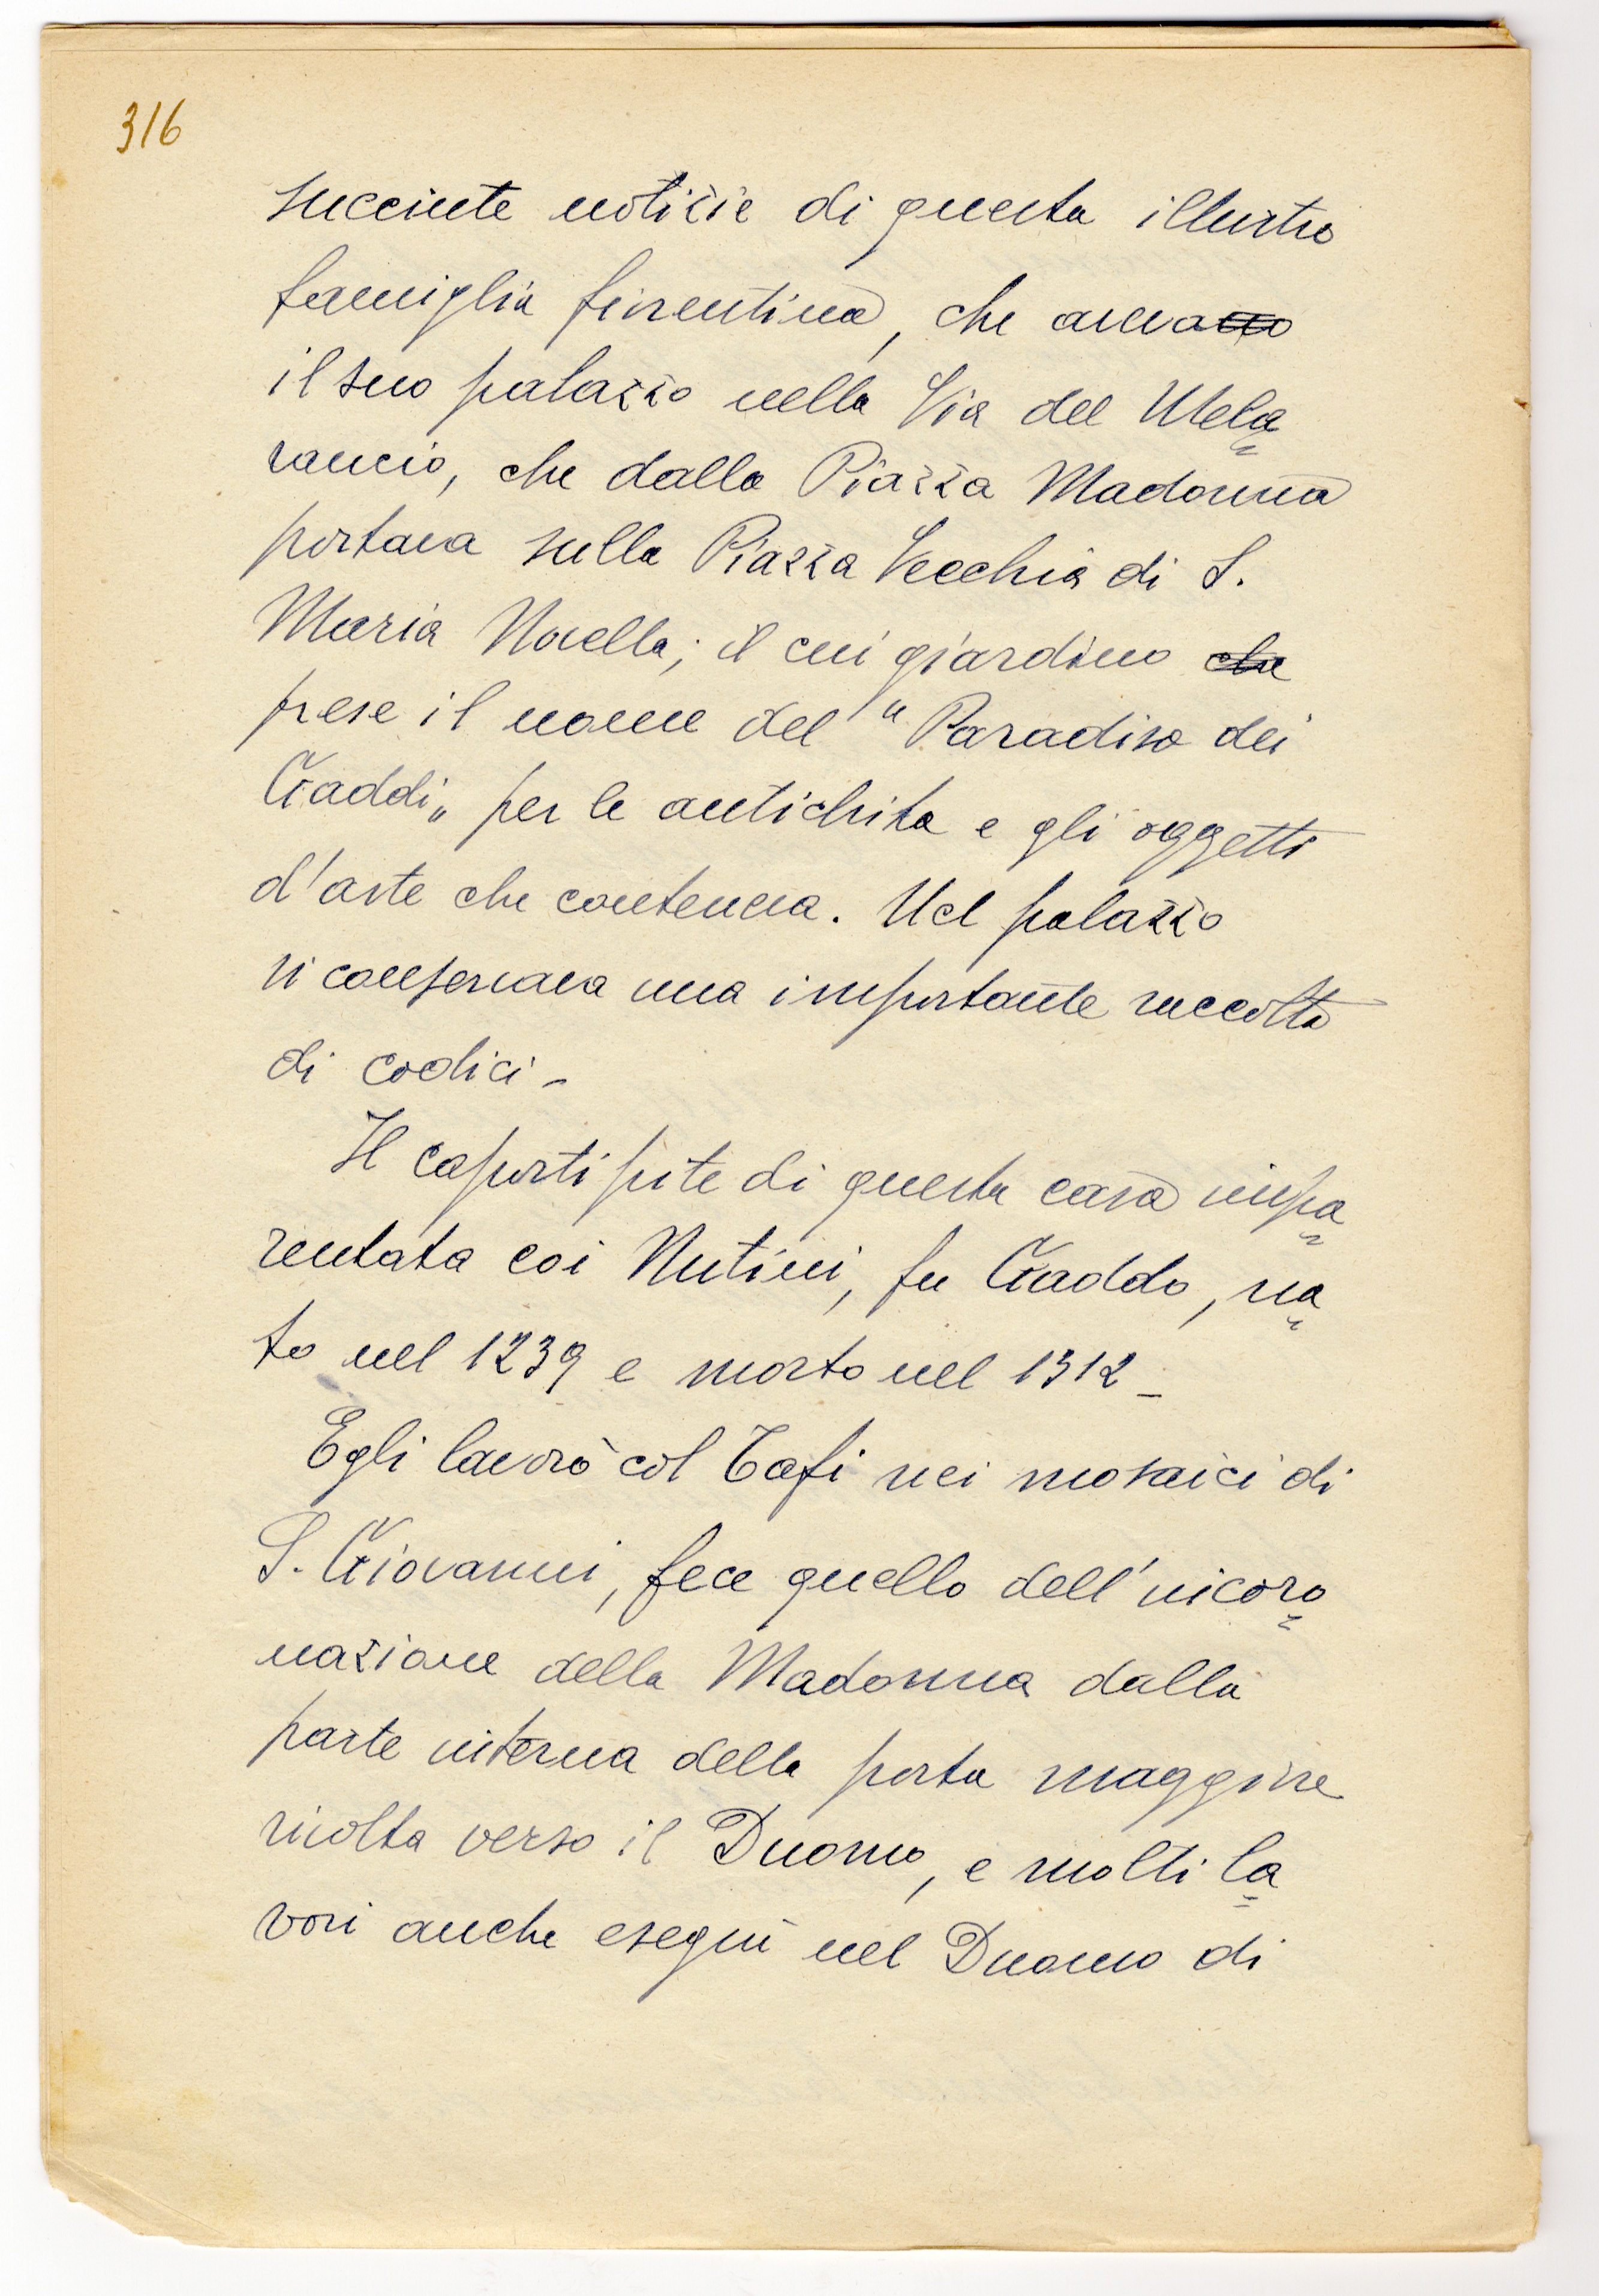 316
succinte notizie di questa illustre
famiglia fiorentina, che aveva~~no~~
il suo palazzo nella Via del Mela
rancio, che dalla Piazza Madonna
portava sulla Piazza Vecchia di S.
Maria Novella; il cui giardino ~~che~~
prese il nome del "Paradiso dei
Gaddi„ per le antichita e gli oggetti
d'arte che conteneva. Nel palazzo
si conservava una importante raccolta
di codici -
Il capostipite di questa casa impa
rentata coi Nutini, fu Gaddo, na
to nel 1239 e morto nel 1312 -
Egli lavorò col Tafi nei mosaici di
S. Giovanni, fece quello dell'incoro
nazione della Madonna dalla
parte interna della porta maggiore
rivolta verso il Duomo, e molti la
vori anche eseguì nel Duomo di